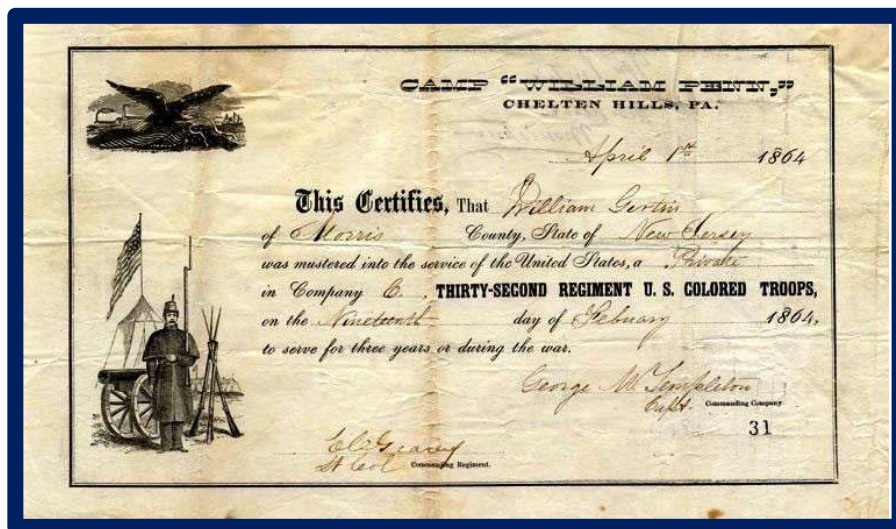 CAMP "WILLIAM PENN,"
CHELTEN HILLS, PA.
April 1st 1864
This Certifies, That William Gertin
of Morris County, State of New Jersey
was mustered into the service of the United States, a Private
in Company C., THIRTY-SECOND REGIMENT U. S. COLORED TROOPS,
on the Nineteenth day of Febuary 1864,
to serve for three years or during the war.
George M Templeton
Capt. Commanding Company
31
Geary
Lt Col Commanding Regiment.